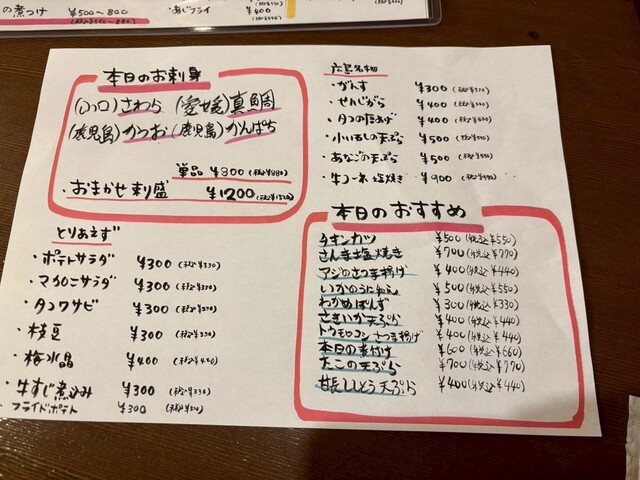 の煮つけ ¥500～800
・あじフライ ¥400
本日のお刺身
(山口)さわら (愛媛)真鯛
(鹿児島)かつお (鹿児島)かんぱち
単品 ¥800(税込¥880)
・おまかせ刺盛 ¥1200(税込¥1320)
とりあえず
・ポテトサラダ ¥300(税込¥330)
・マカロニサラダ ¥300(税込¥330)
・タコワサビ ¥300(税込¥330)
・枝豆 ¥300(税込¥330)
・梅水晶 ¥400(税込¥440)
・牛すじ煮込み ¥300(税込¥330)
・フライドポテト ¥300(税込¥330)
広島名物
・がんす ¥300(税込¥330)
・せんじがら ¥400
・タコのたあげ ¥400
・小いわしの天ぷら ¥500
・あなごの天ぷら ¥500
塩焼き ¥900
本日のおすすめ
チキンカツ ¥500(税込¥550)
さんま塩焼き ¥700(税込¥770)
アジのさつま揚げ ¥400(税込¥440)
いかのうに和え ¥500(税込¥550)
わかめぽんず ¥300(税込¥330)
さきいか天ぷら ¥400(税込¥440)
トウモロコシさつま揚げ ¥400(税込¥440)
本日の煮付け ¥600(税込¥660)
たこの天ぷら ¥700(税込¥770)
甘長ししとう天ぷら ¥400(税込¥440)